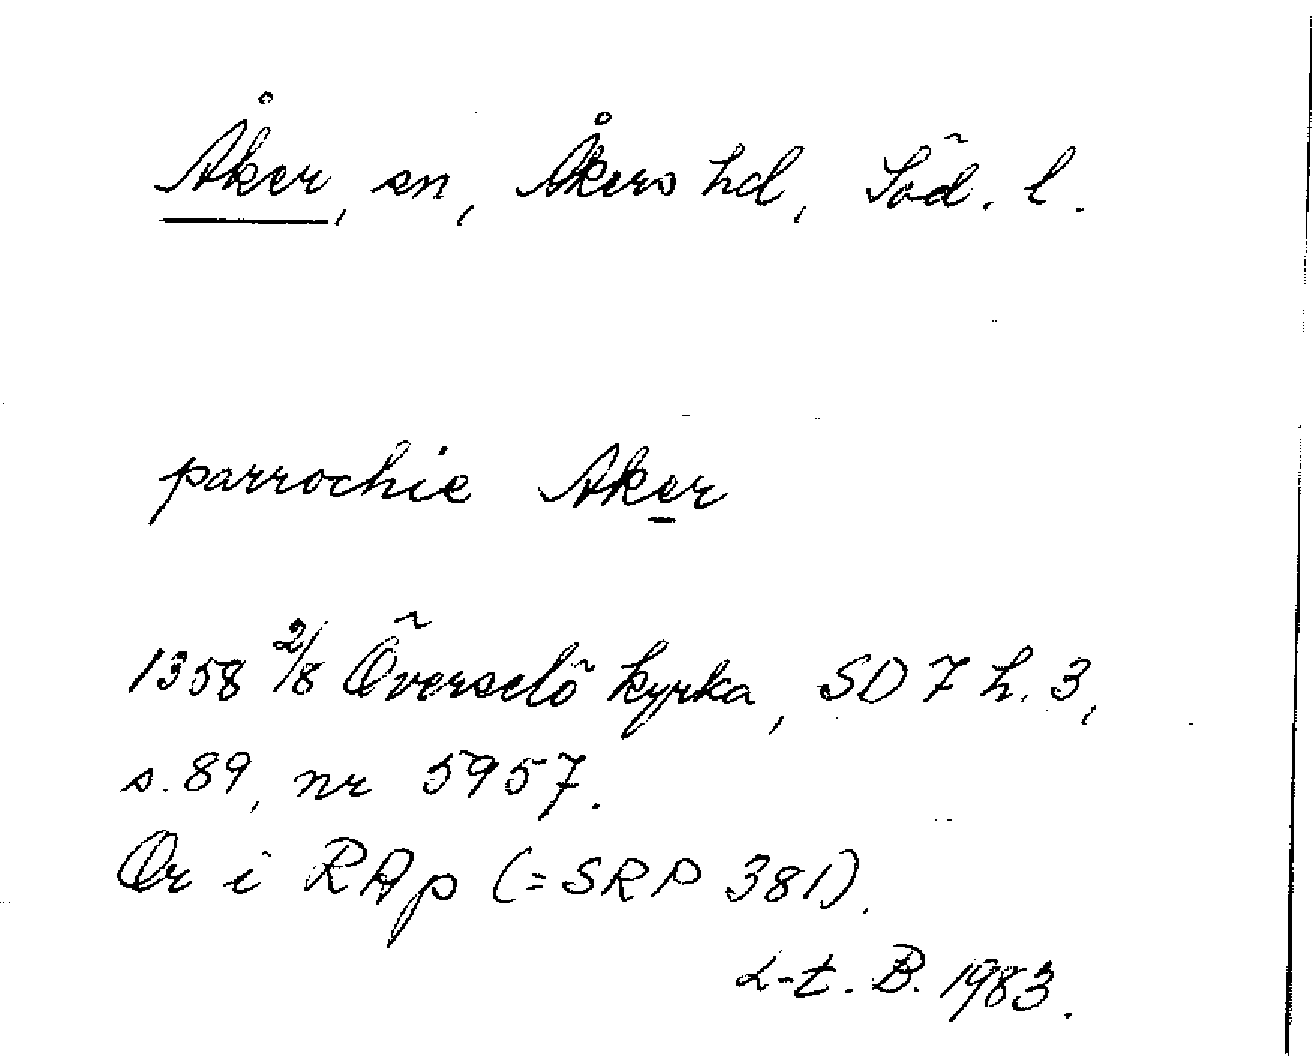 Åker, sn, Åkers hd, Söd. l.
parrochie Aker
1358 2/8 Överselö kyrka, SD 7 h. 3,
s. 89, nr 5957.
Or i RAp (=SRP 381).
L-t. B. 1983.